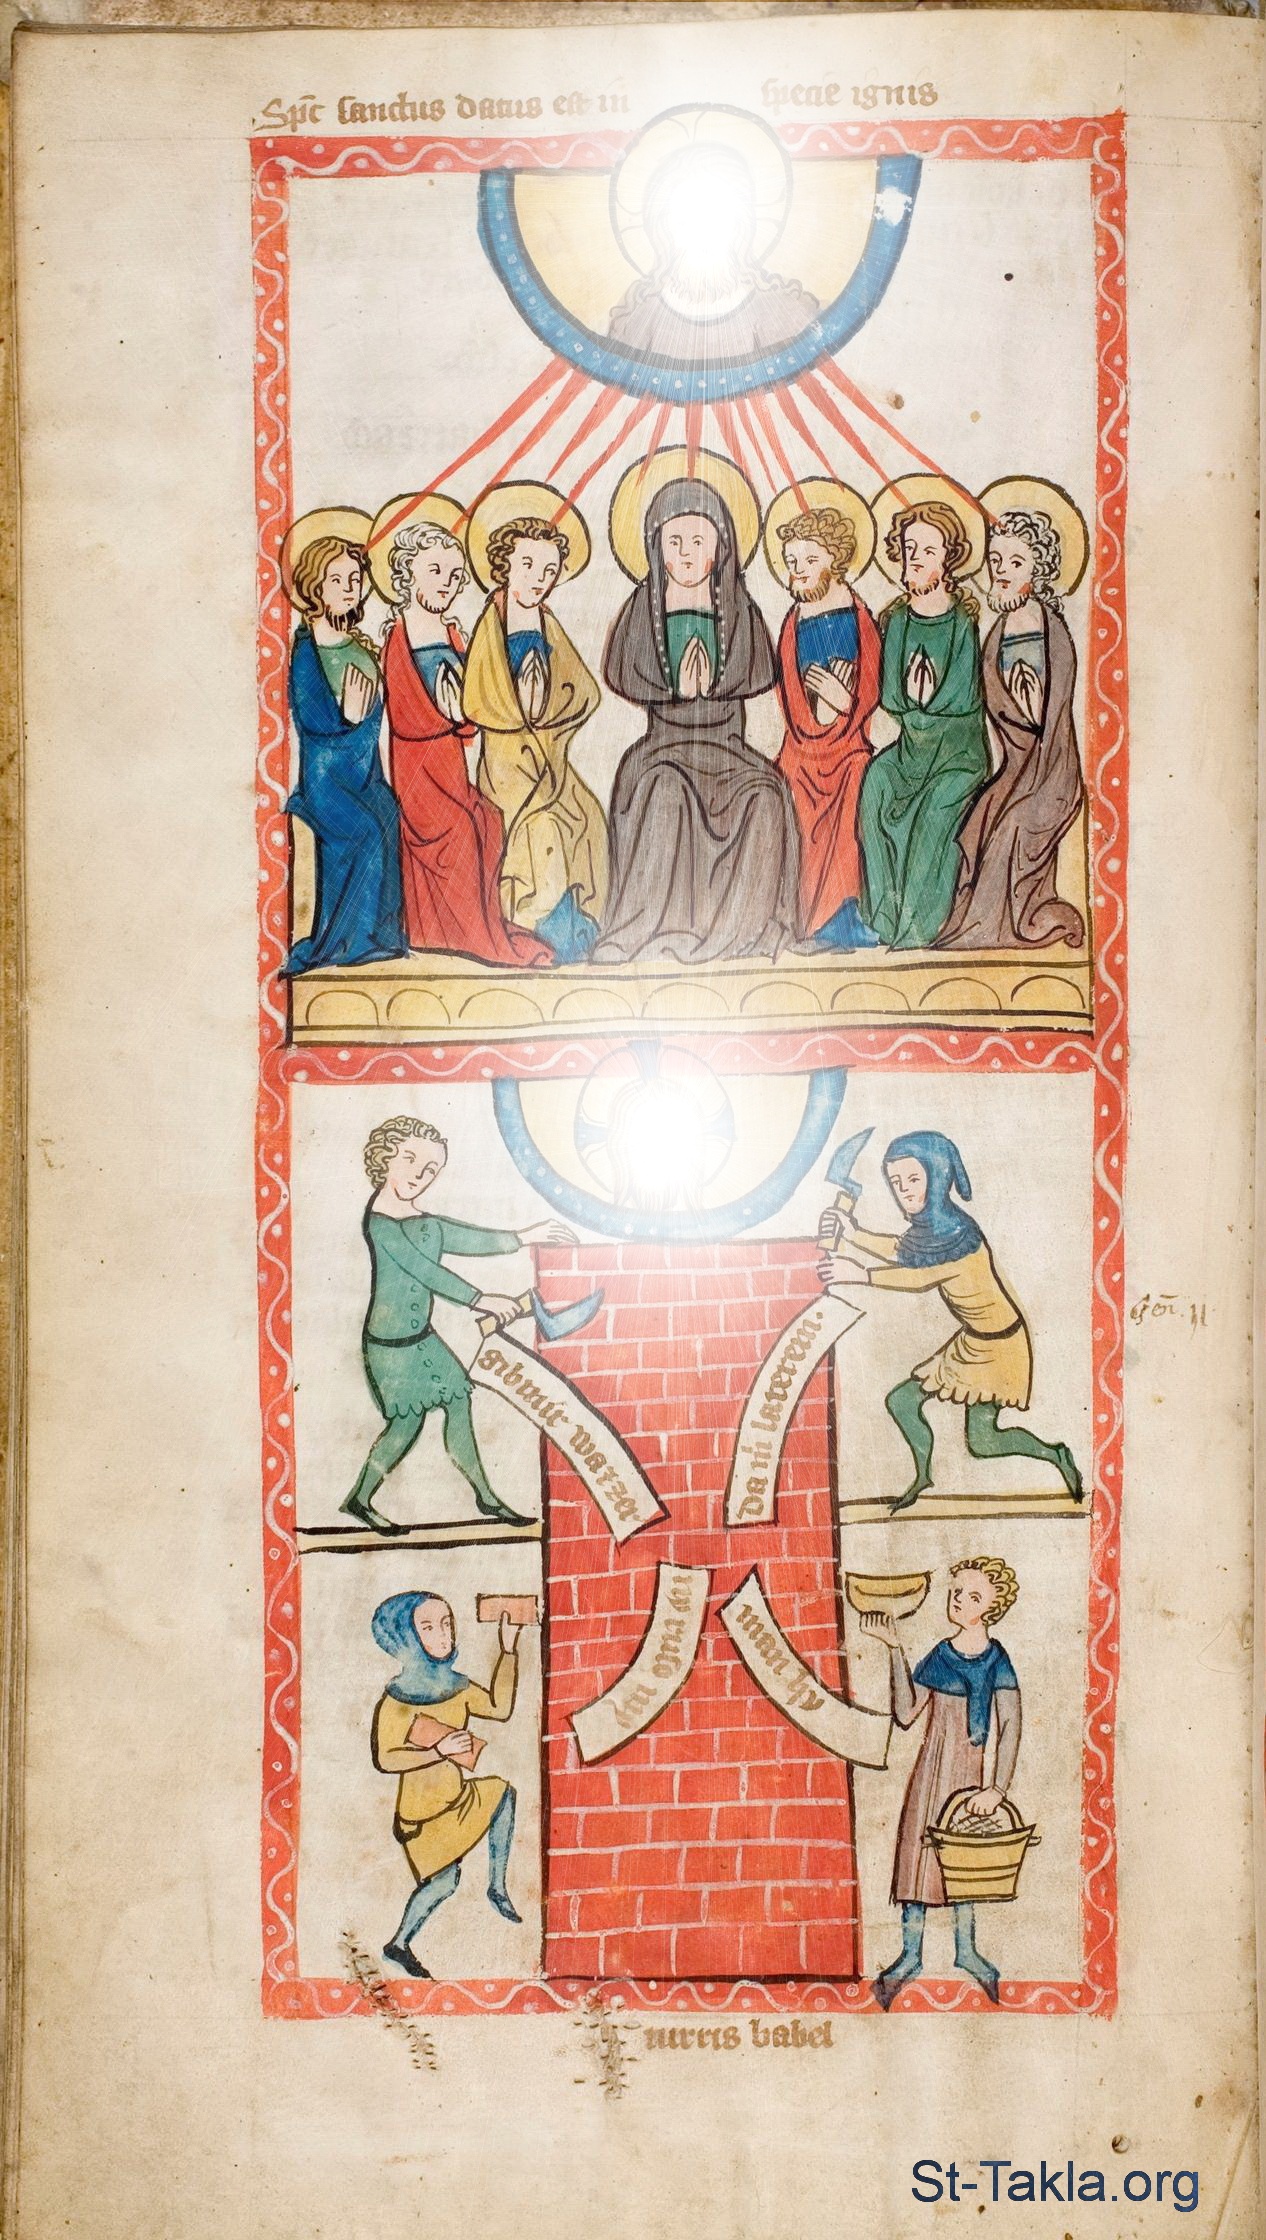 Sp̄c sanctus datus est in specie ignis
Gen. 11
gib mir wazzer
Da m̄ laterem.
turris babel
St-Takla.org